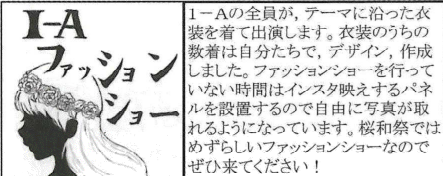 1-A
ファッション
ショー
1-Aの全員が，テーマに沿った衣
装を着て出演します。衣装のうちの
数着は自分たちで，デザイン，作成
しました。ファッションショーを行って
いない時間はインスタ映えするパネ
ルを設置するので自由に写真が取
れるようになっています。桜和祭では
めずらしいファッションショーなので
ぜひ来てください！